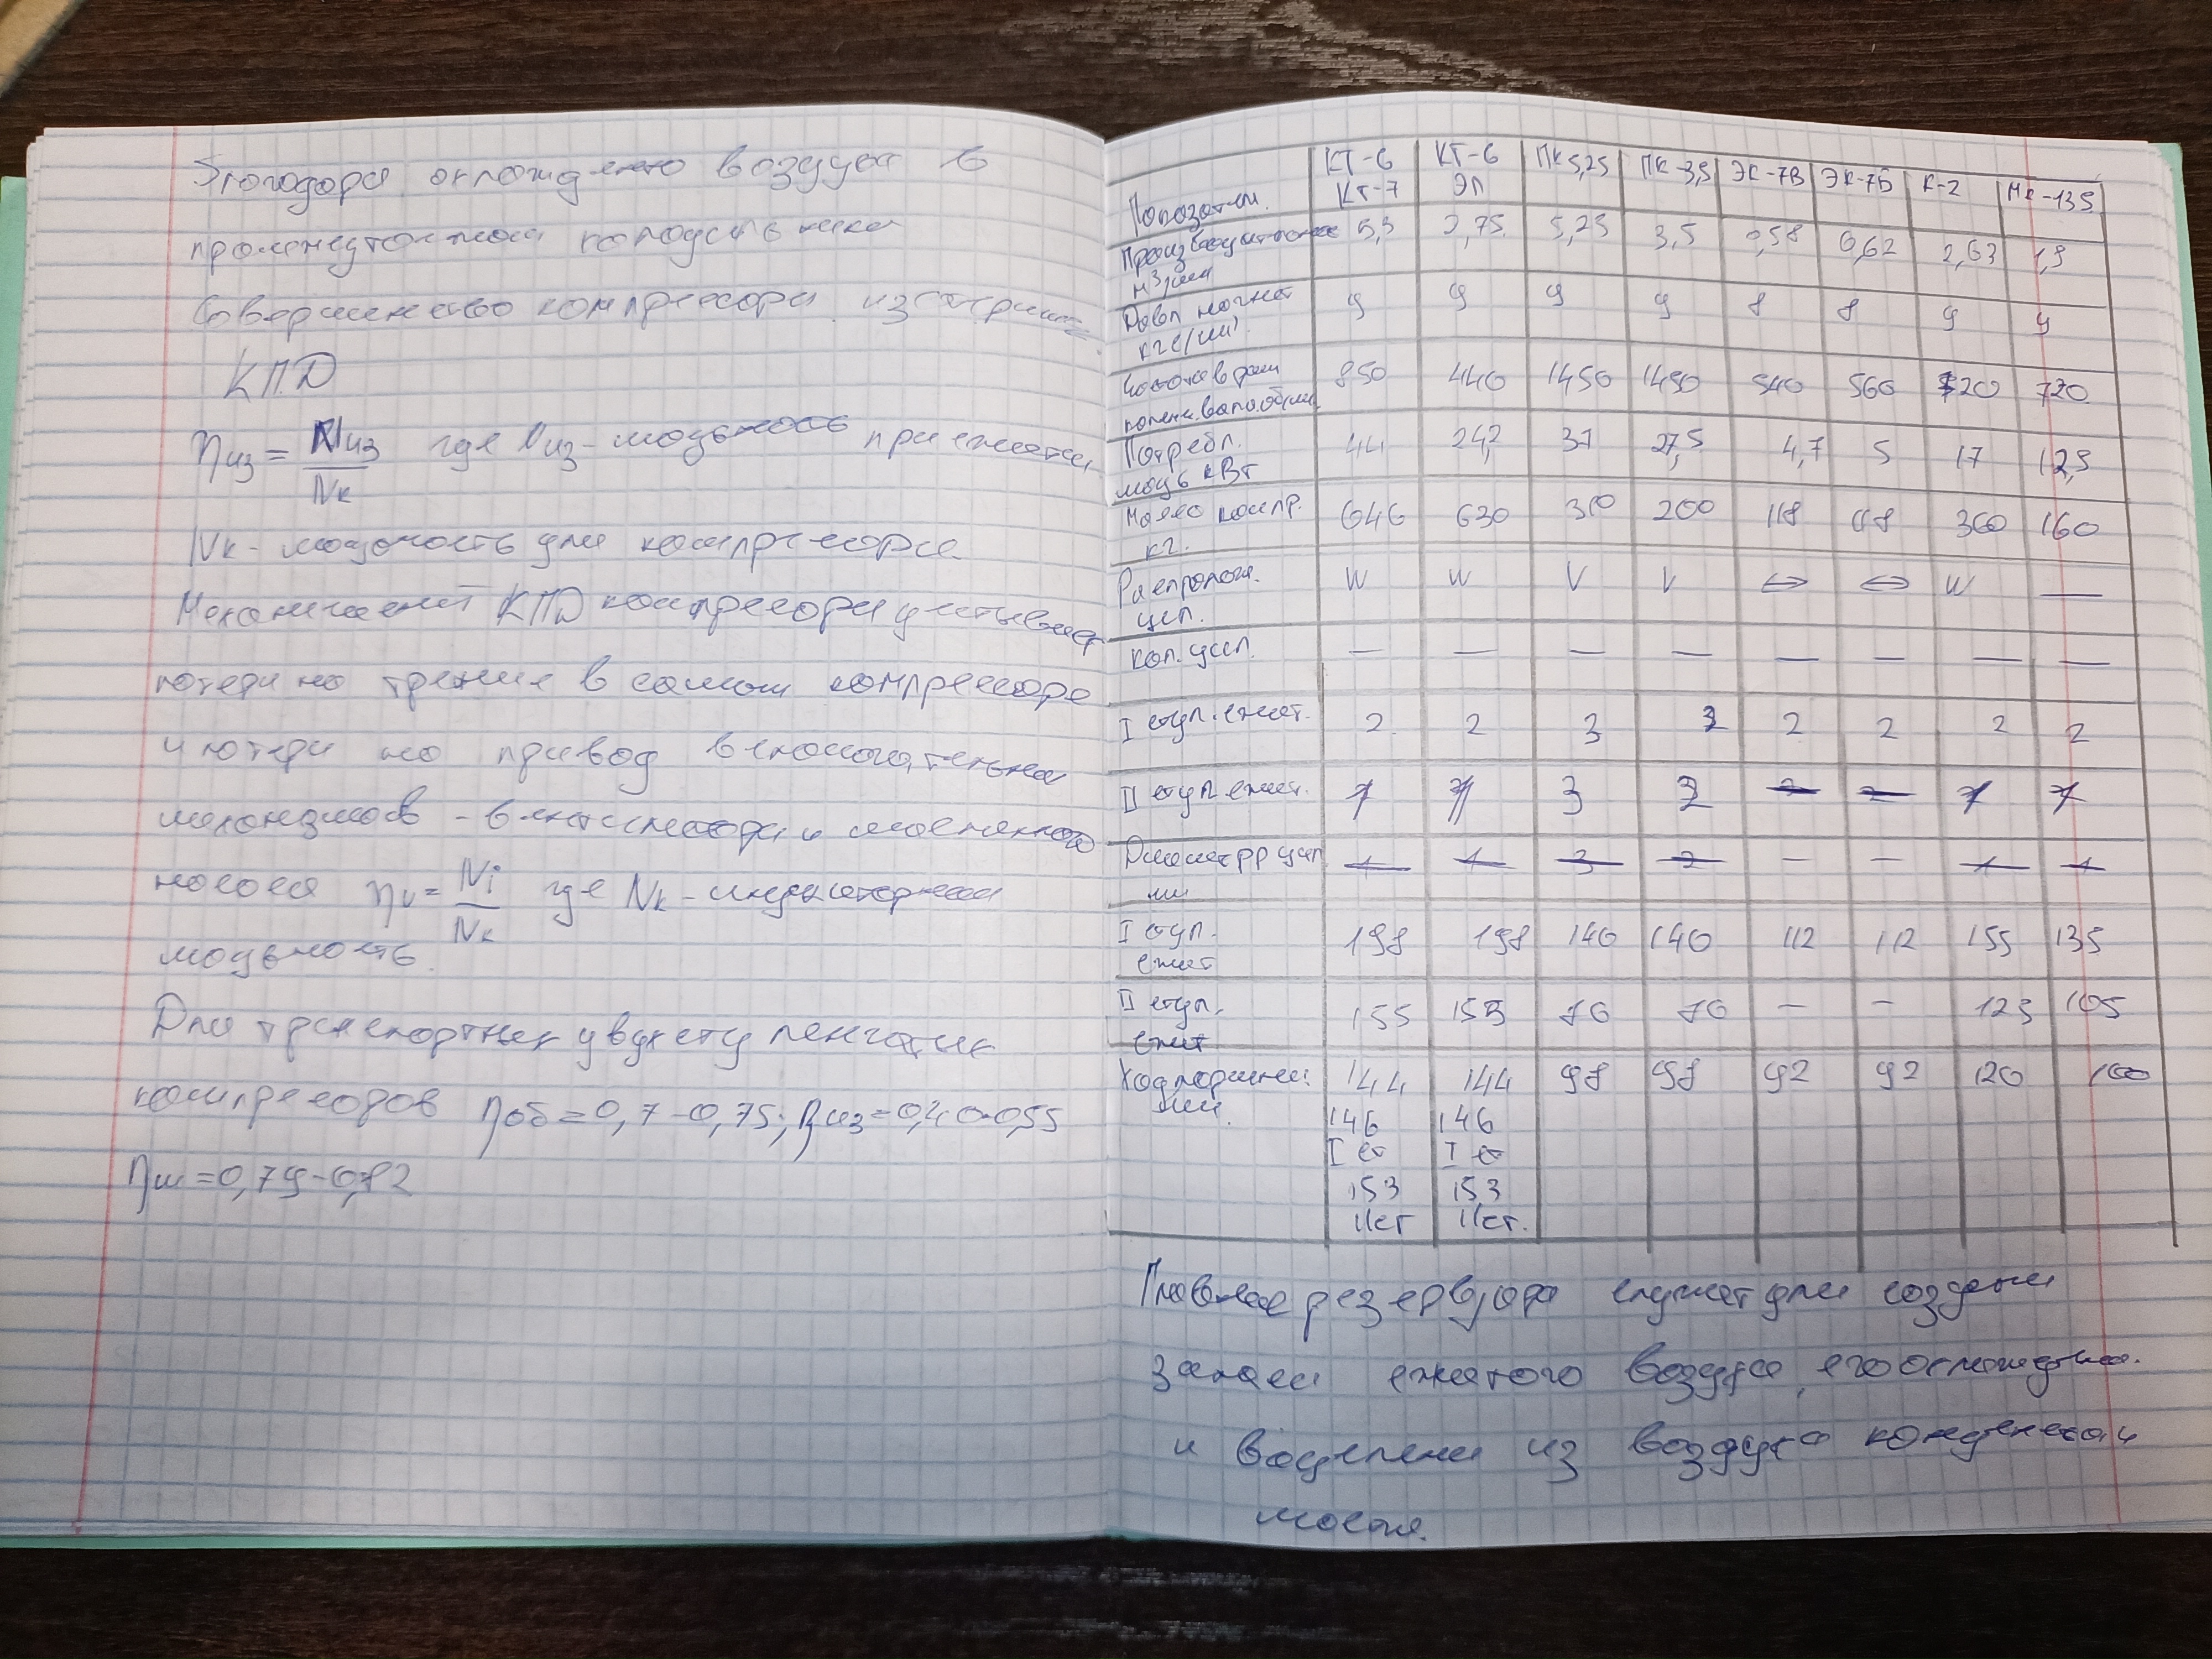 охлаждению воздуха в
промежуточном холодильнике
Совершенство компрессора
КПД
ηиз = Nиз/Nк где Nиз - мощьность при сжатии
Nк - мощность для компрессора
Механический КПД компрессора учитывает
потери на трение в самом компрессоре
и потери на привод
механизмов - вентилятора и масленного
насоса ην = Ni/Nк где Nк - индикаторная
мощьность.
Для транспортных двухступенчатых
компрессоров ηоб = 0,7-0,75; ηиз = 0,40-0,55
ηм = 0,79-0,82
Показатели. КТ-6 КТ-7 КТ-6 ЭП ПК 5,25 ПК-3,5 ЭК-7В ЭК-7Б К-2 МК-135
Производительность м³/мин 5,3 2,75 5,25 3,5 0,58 0,62 2,63 1,9
Давл нагнет кгс/см² 9 9 9 9 8 8 9 9
колен.вала.об/мин 850 440 1450 1450 540 560 720 720
Потребл. мощь кВт 44 24,2 37 27,5 4,7 5 17 12,5
Масса компр. кг. 646 630 310 200 118 118 360 160
Располож. цил. W W V V ⇔ ⇔ W —
кол. цил. — — — — — — — —
I ступ. сжат. 2 2 3 2 2 2 2 2
II ступ сжат. 1 1 3 2 1 1
Диаметр цил мм — —
I ступ. сжат 198 198 140 140 112 112 155 135
II ступ. сжат 155 155 76 76 — — 125 105
Ход поршня: мм. 144 144 98 98 92 92 120 100
146 146
I ст I ст
153 153
II ст II ст.
Главные резервуара служат для создани
запаса сжатого воздуха, его охлаждения.
и выделени из воздуха конденсата и
масла.